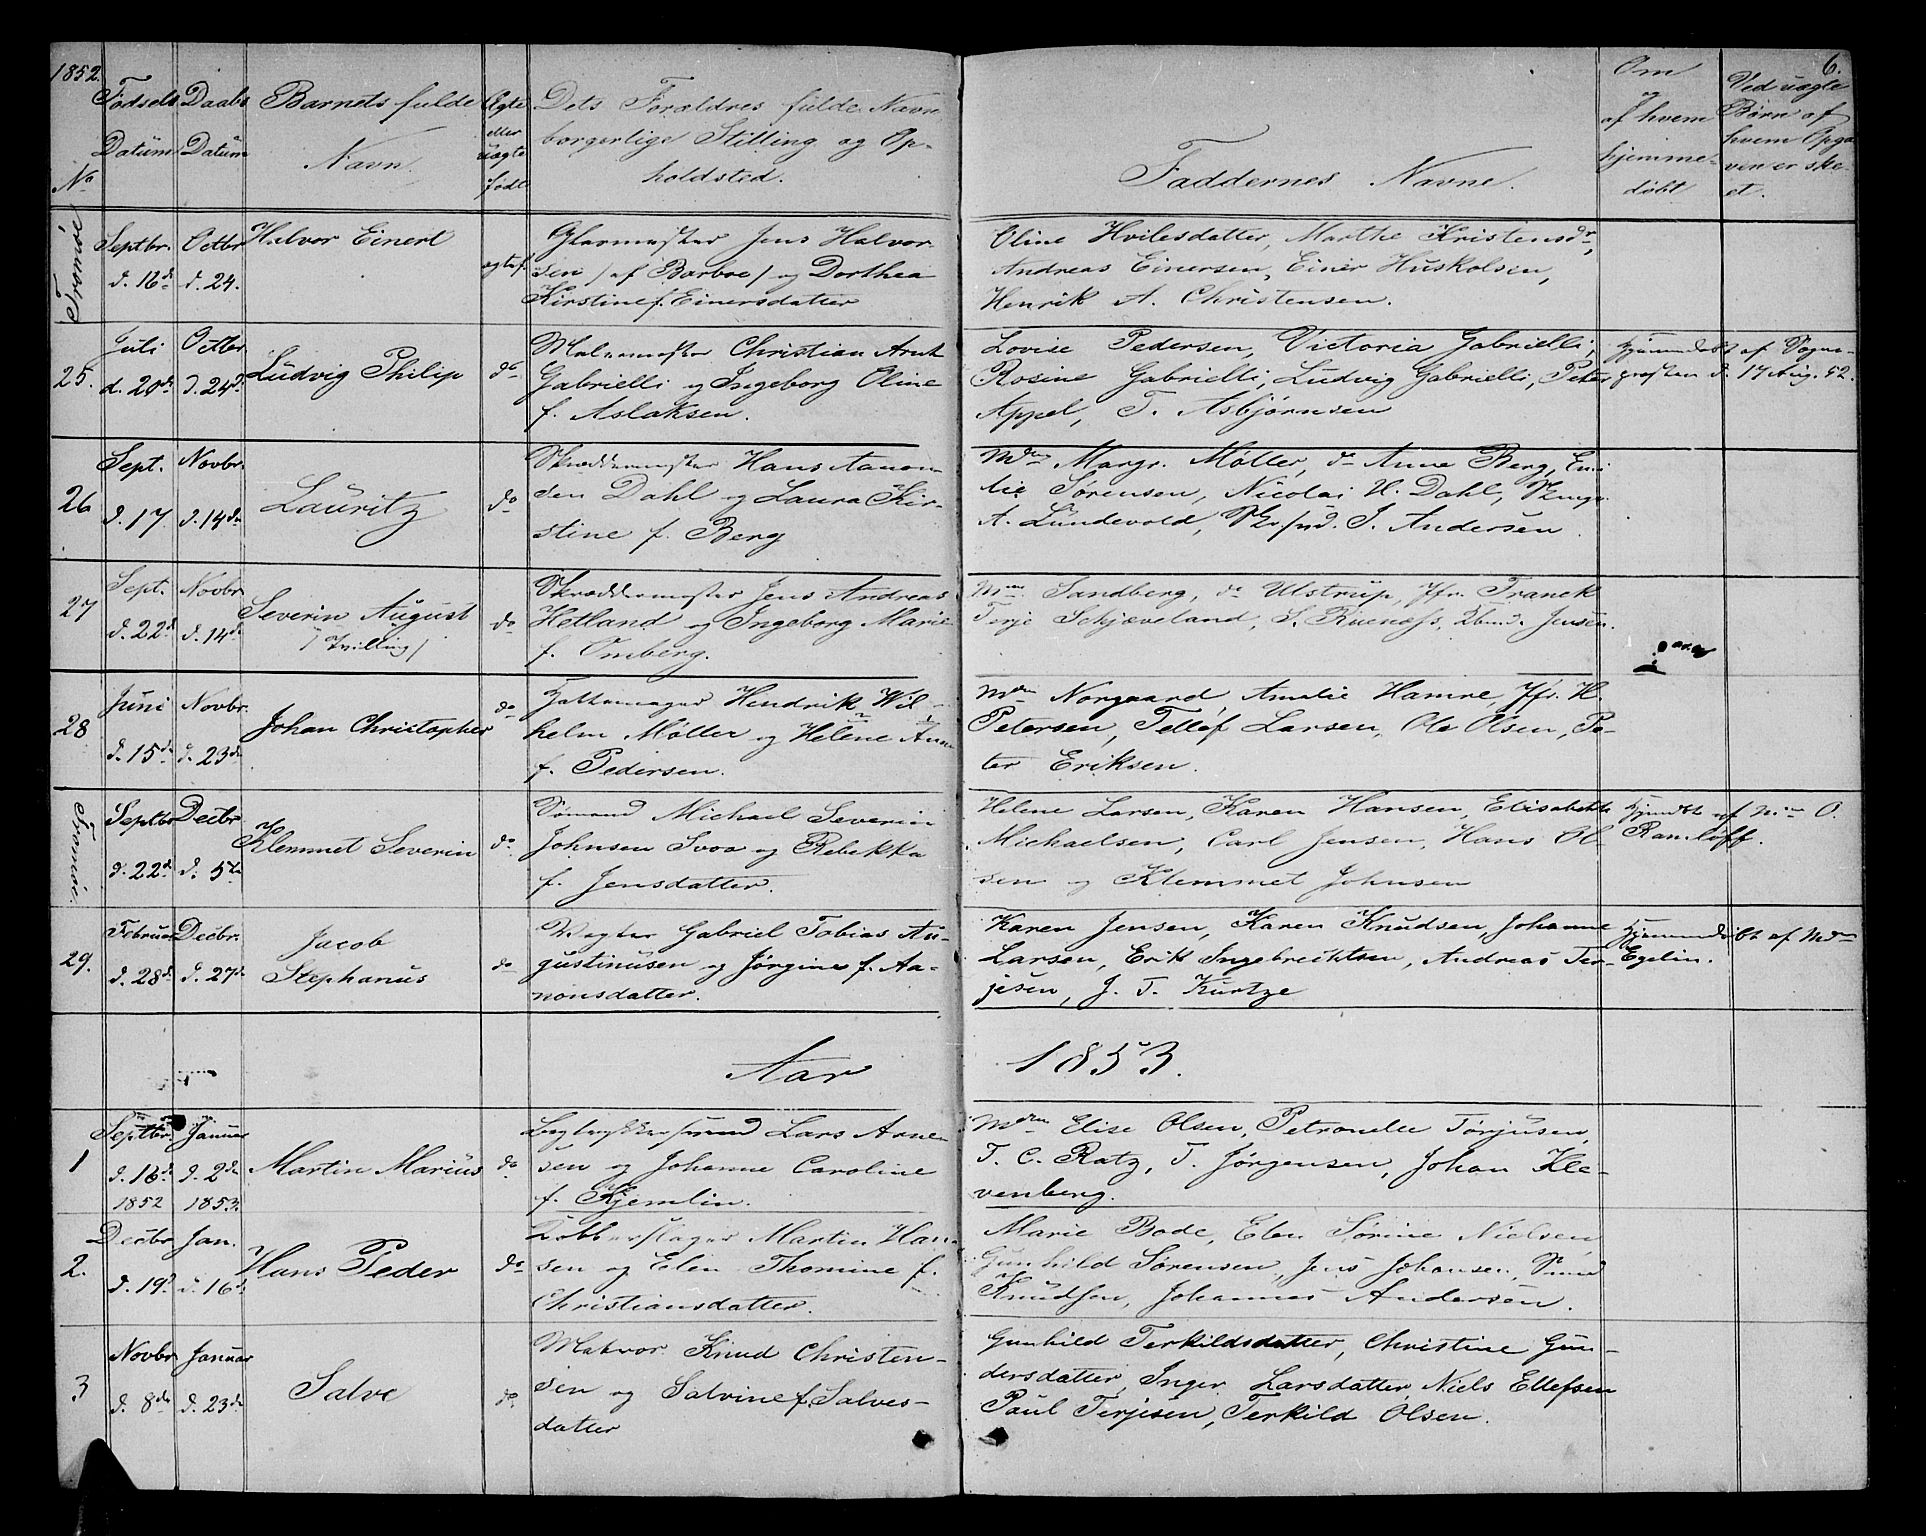 1852.
6.
No
Fødsels Datum
Daabs Datum
Barnets fulde Navn.
Ægte eller uægte født
Dets Forældres fulde Navn
borgerlige Stilling og Op-
holdsted.
Faddernes Navne.
Om
af hvem
hjemme-
døbt
Ved uægte
Børn af
hvem Opga
ven er ske-
et.
Tromøe
Septbr. d. 16de
Octbr d. 24.
Halvor Einert
ægtef.
Glasmester Jens Halvor-
sen / af Barboe / og Dorthea
Kirstine f. Einersdatter
Oline Hvilesdatter, Marthe Kristensdr,
Andreas Einersen, Einer Huskolsen,
Henrik A. Christensen.
25.
Juli d. 20de
Octbr. d. 24de
Ludvig Philip
do
Malermester Christian Arnt
Gabrielli og Ingeborg Oline
f. Aslaksen.
Lovise Pedersen, Victoria Gabrielli,
Rosine Gabrielli, Ludvig Gabrielli, Peter
Appel, T. Asbjørnsen
Hjemmedøbt af Sogne-
præsten d. 17 Aug. 52.
26
Sept. d. 17
Novbr. d. 14de
Lauritz
do
Skræddermester Hans Aanon-
sen Dahl og Laura Kir-
stine f. Berg
Mdm Margr. Møller, do Anne Berg, Emi-
lie Sørensen, Nicolai H. Dahl,
A. Lundevold, J. Andersen
27
Sept. d. 22de
Novbr d. 14de
Severin August
/ Tvilling /
do
Skræddermester Jens Andreas
Hetland og Ingeborg Marie
f. Omberg.
Mdm Sandberg, do Ulstrup, Jfr. Franck
Terje Schjæveland, S. Ruenæss, Jensen.
28
Juni d. 15de
Novbr. d. 23de
Johan Christopher
do
Hattemager Hendrik Wil-
helm Møller og Helene Anne
f. Pedersen.
Mdm Norgaard Amalie Hamre, Jfr. H.
Petersen, Tellef Larsen, Ole Olsen, Pe-
ter Eriksen.
Tromøe.
Septbr d. 22de
Decbr d. 5te
Klemmet Severin
do
Sømand Michael Severin
Johnsen Svoo og Rebekka
f. Jensdatter.
Helene Larsen, Karen Hansen, Elisabeth
Michaelsen, Carl Jensen, Hans Ol-
sen og Klemmet Johnsen
Hjemdbt af Mdm O.
Ramløff.
29.
Februar d. 28de
Decbr. d. 27de
Jacob
Stephanus
do
Vægter Gabriel Tobias Au-
gustinusen og Jørgine f. Aa-
nonsdatter.
Karen Jensen, Karen Knudsen, Johanne
Larsen, Erik Ingebrecktsen, Andreas Ter-
jesen, J. T. Kurtze
Hjemmedøbt af Mdm
Egelin.
Aar 1853.
1
Septbr. d. 16de 1852
Januar d. 2de 1853.
Martin Marius
do
Lars Arne-
sen og Johanne Caroline
f. Kjemlin.
Mdm Elise Olsen, Petronelle Tørjusen,
T. C. Ratz, T. Jørgensen, Johan Kle-
venberg.
2.
Decbr d. 19d
Jan. d. 16de
Hans Peder
do
Kobberslager Martin Han-
sen og Elen Thomine f.
Christiansdatter.
Marie Bode, Elen Sørine Nielsen,
Gunhild Sørensen, Jens Johansen,
Knudsen, Johannes Andersen.
3
Novbr d. 8de
Januar d. 23de
Salve
do
Matros Knud Christen-
sen og Salvine f. Salves-
datter
Gunhild Terkildsdatter, Christine Gun-
dersdatter, Inger Larsdatter, Niels Ellefsen
Paul Terjesen, Terkild Olsen.